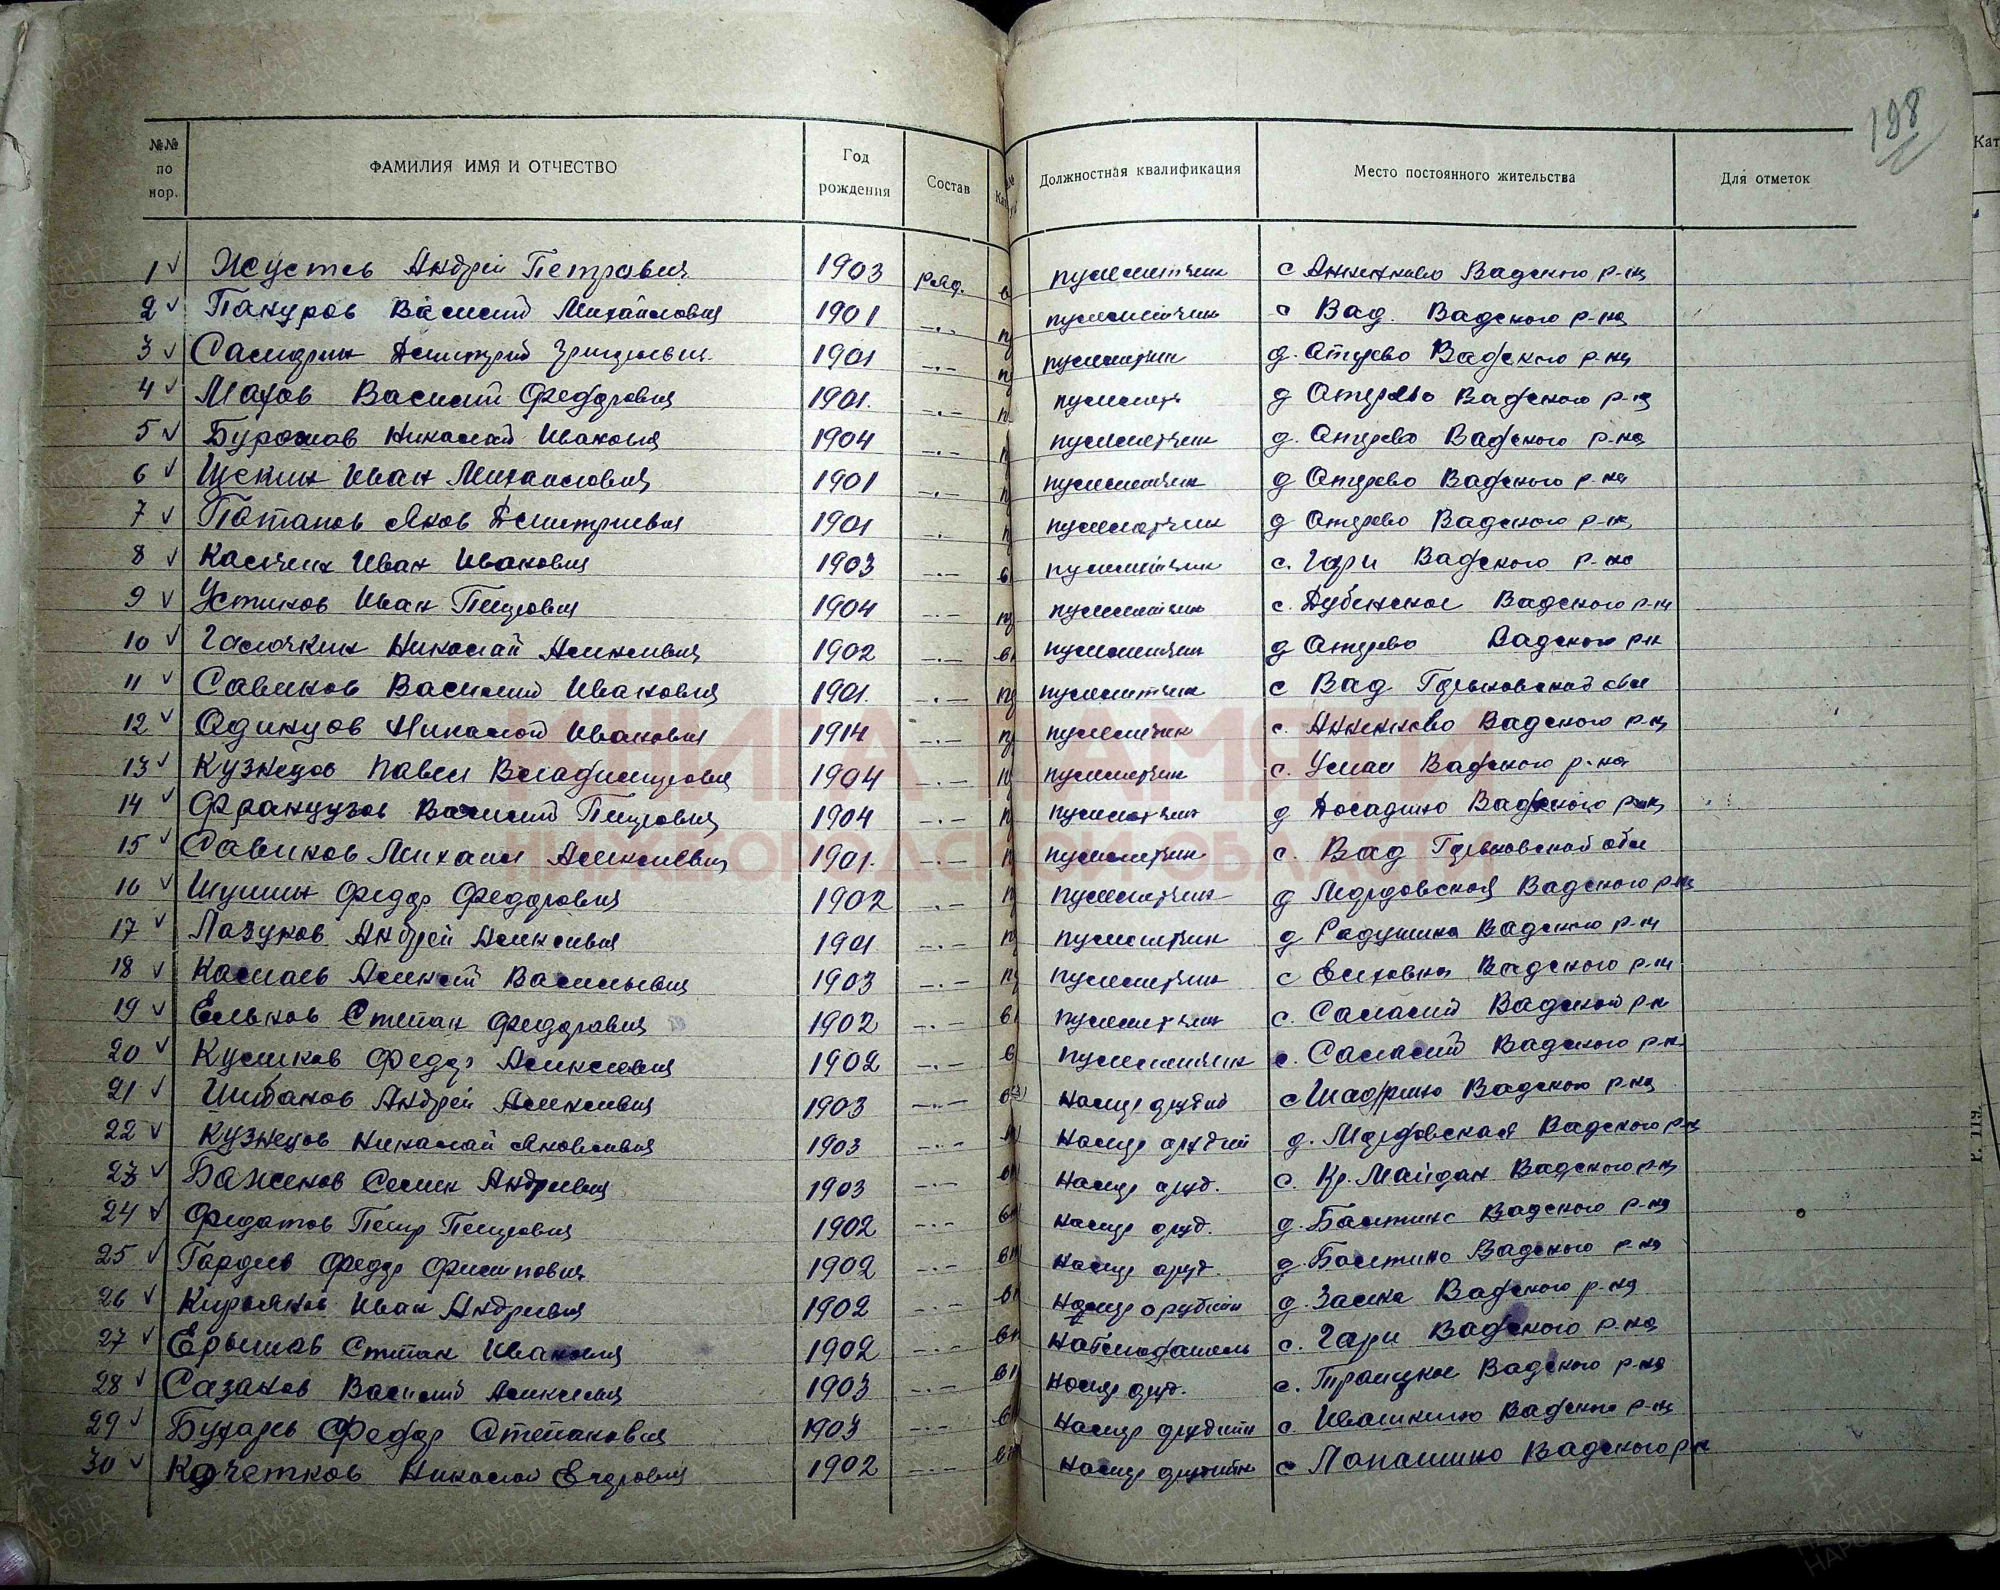 188
№№ по нор. ФАМИЛИЯ ИМЯ И ОТЧЕСТВО Год рождения Состав Должностная квалификация Место постоянного жительства Для отметок Кат
1 Андрей Петрович 1903 ряд. пулеметчик с Анненково Вадского р-на
2 Пануров Василий Михайлович 1901 –.– пулеметчик с Вад. Вадского р-на
3 Дмитрий Григорьевич 1901 –.– пулеметчик д. Отерево Вадского р-на
4 Махов Василий Федорович 1901. –.– д Вадского р-на
5 Николай Иванович 1904 –.– пулеметчик д. Вадского р-на
6 Щекин Иван Михайлович 1901 –.– пулеметчик д Вадского р-на
7 Потапов Яков Дмитриевич 1901 –.– пулеметчик д Вадского р-на
8 Иван Иванович 1903 –.– пулеметчик с. Гари Вадского р-на
9 Устинов Иван Петрович 1904 –.– пулеметчик с. Дубенское Вадского р-на
10 Галочкин Николай Алексеевич 1902 –.– пулеметчик д Вадского р-н
11 Савинов Василий Иванович 1901. –.– пулеметчик с Вад Горьковской обл
12 Одинцов Николай Иванович 1914 –.– пулеметчик с. Анненково Вадского р-на
13 Кузнецов Павел Владимирович 1904 –.– пулеметчик с. Вадского р-на
14 Французов Василий Петрович 1904 –.– пулеметчик д Досадино Вадского р-на
15 Савинов Михаил Алексеевич 1901. –.– пулеметчик с. Вад Горьковской обл
16 Шушин Федор Федорович 1902 –.– пулеметчик д Мордовская Вадского р-на
17 Лазунов Андрей Алексеевич 1901 –.– пулеметчик д Вадского р-на
18 Алексей Васильевич 1903 –.– пулеметчик с Елховка Вадского р-на
19 Ельков Степан Федорович 1902 –.– пулеметчик с. Салалей Вадского р-н
20 Куликов Федор Алексеевич 1902 –.– пулеметчик с. Салалей Вадского р-н
21 Шибанов Андрей Алексеевич 1903 –.– номер орудий с Шадрино Вадского р-на
22 Кузнецов Николай Яковлевич 1903 –.– номер орудий д. Мордовская Вадского р-н
23 Баженов Семен Андреевич 1903 –.– номер оруд. с. Кр. Майдан Вадского р-на
24 Федотов Петр Петрович 1902 –.– номер оруд. д. Вадского р-на
25 Гордеев Федор Филиппович 1902 –.– номер оруд. д. Вадского р-на
26 Иван Андреевич 1902 –.– номер орудийн д. Вадского р-на
27 Ерышов Степан Иванович 1902 –.– наблюдатель с. Гари Вадского р-на
28 Сазанов Василий Алексеевич 1903 –.– номер оруд. с. Троицкое Вадского р-на
29 Федор Степанович 1903 –.– номер орудийн с. Ивашкино Вадского р-на
30 Кочетков Николай Егорович 1902 –.– номер орудийн с Лопатино Вадского р-н
КНИГА ПАМЯТИ
НИЖЕГОРОДСКОЙ ОБЛАСТИ
ПАМЯТЬ НАРОДА